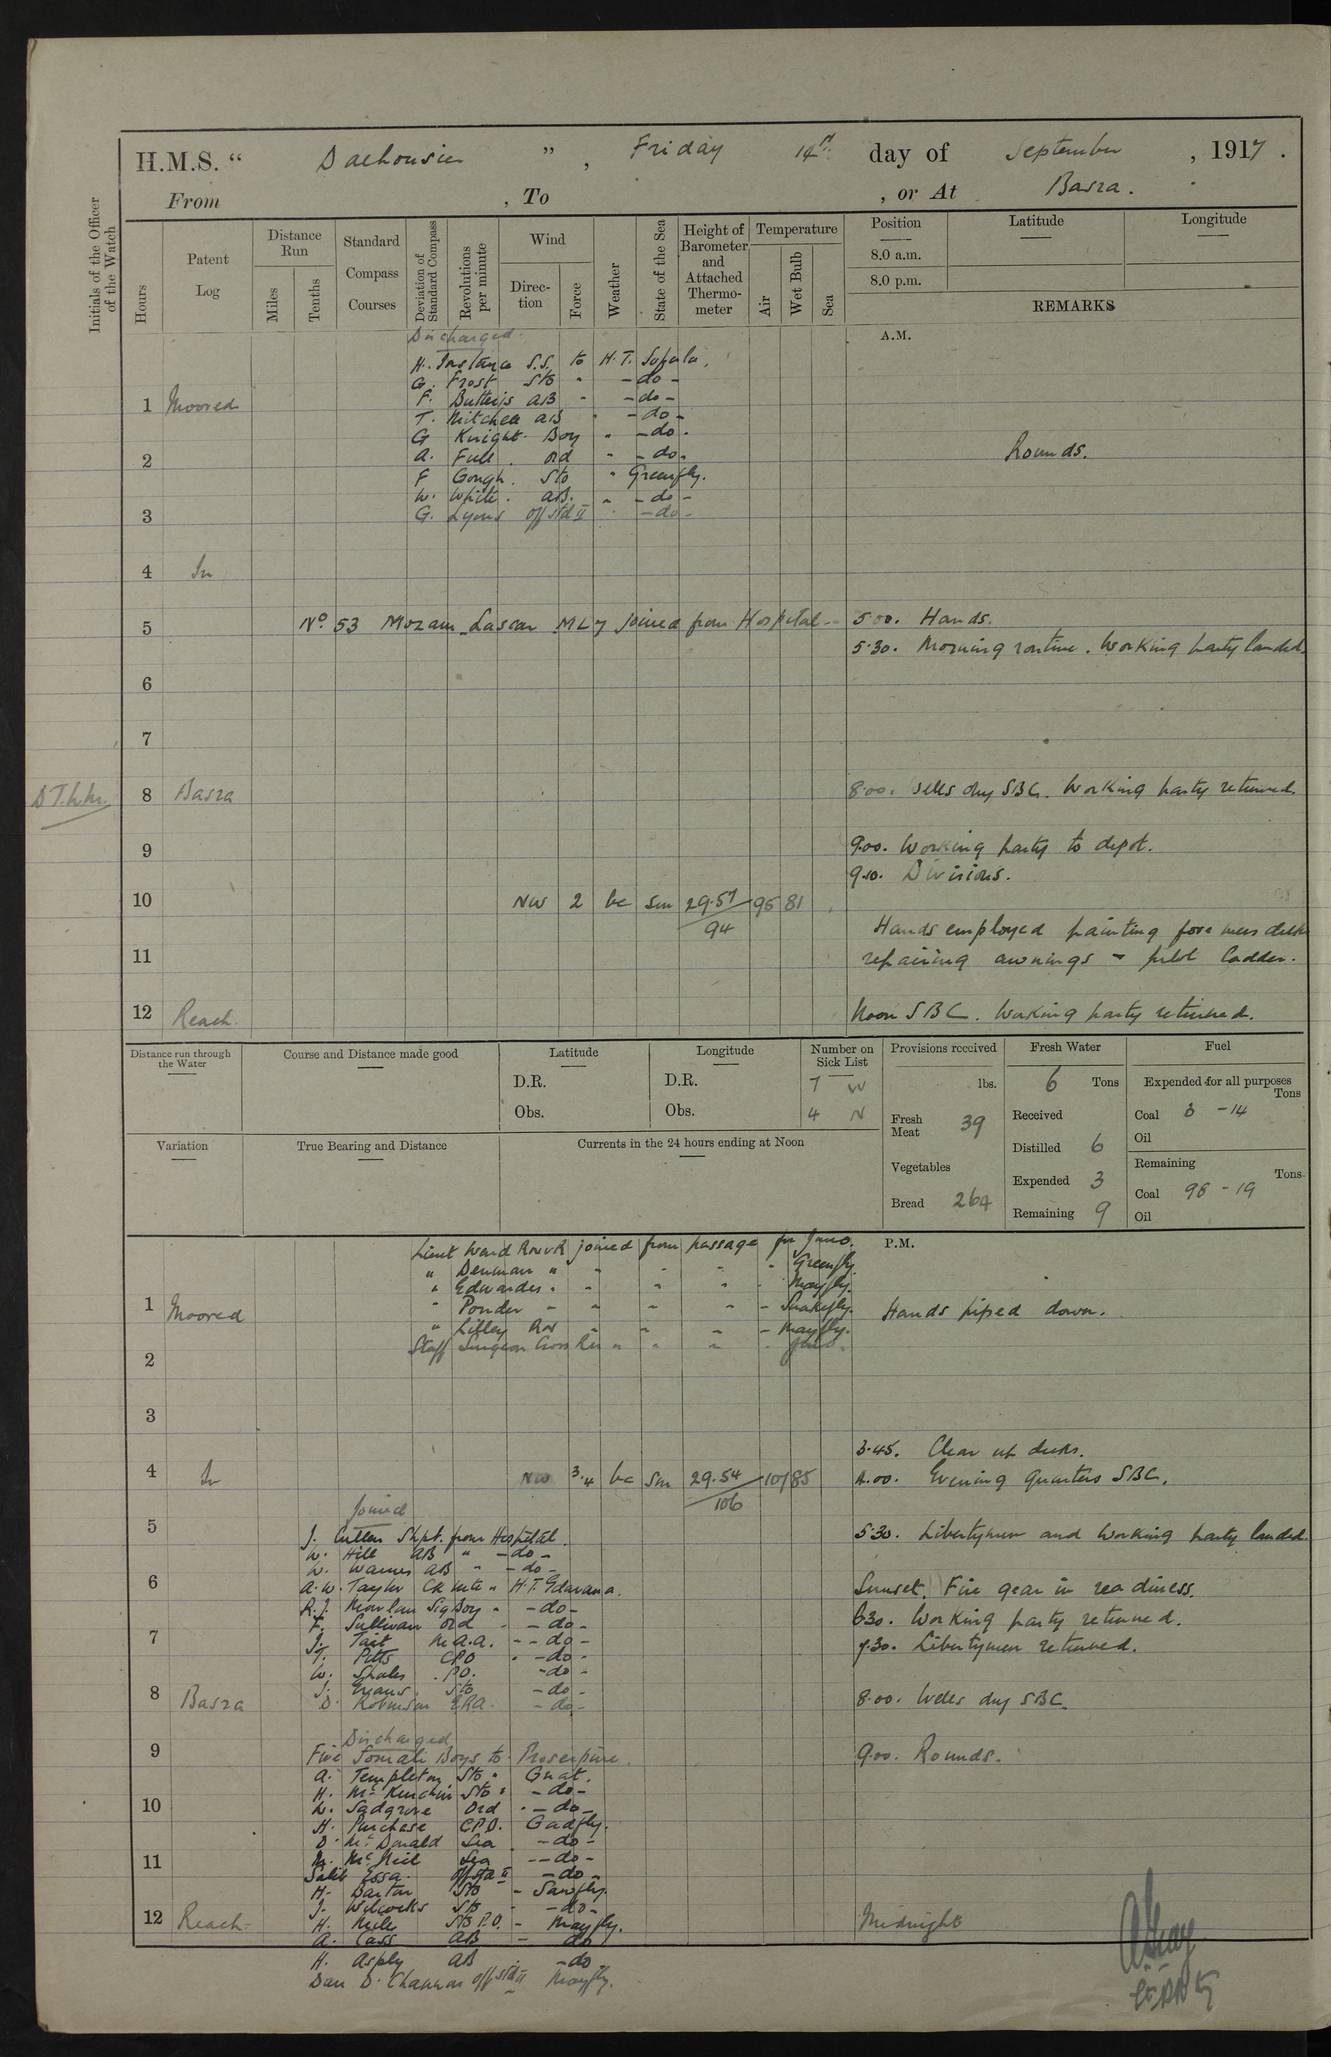 H.M.S. “ Dalhousie ” , Friday 14th day of September , 1917 .
From , To , or At Basra .
Initials of the Officer of the Watch
Hours
Patent Log
Distance Run
Miles
Tenths
Standard Compass Courses
Deviation of Standard Compass
Revolutions per minute
Wind
Direction
Force
Weather
State of the Sea
Height of Barometer and Attached Thermometer
Temperature
Air
Wet Bulb
Sea
Position
Latitude
Longitude
8.0 a.m.
8.0 p.m.
REMARKS
A.M.
Discharged
H. Instance S.S. to H.T. Sofala.
G. Frost Sto " - do -
F. Butteris AB " - do -
1 Moored
T. Mitchell AB " - do -
G Knight Boy " - do -
2 Rounds.
A. Full Ord " - do -
F Gough. Sto " Greenfly.
W. White. AB. " - do -
3
G. Lyons Off Std II " - do -
4 In
5 No 53 Mozam Lascar MLy joined from Hospital - 5.00. Hands.
5.30. Morning routine. Working party landed.
6
7
8 Basra 8.00. Wells dry SBC. Working party returned.
9 9.00. Working party to depot.
9.10. Divisions.
10 NW 2 bc sm 29.57 95 81
94
Hands employed painting fore mess deck
11 repairing awnings & pilot ladder.
12 Reach. Noon SBC. Working party returned.
Distance run through the Water
Course and Distance made good
Latitude
D.R.
Obs.
Longitude
D.R.
Obs.
Number on Sick List
7 W
4 N
Provisions received
lbs.
Fresh Meat 39
Vegetables
Bread 264
Fresh Water
6 Tons
Received
Distilled 6
Expended 3
Remaining 9
Fuel
Expended for all purposes
Tons
Coal 3 - 14
Oil
Remaining
Tons
Coal 98 - 19
Oil
Variation
True Bearing and Distance
Currents in the 24 hours ending at Noon
P.M.
Lieut Ward RNVR joined from passage for Juno.
" Denman " " " " " Greenfly.
" Edwardes " " " " " Mayfly.
1 Moored " Ponder " " " " " Snakefly. Hands piped down.
" Lilley RN " " " " Mayfly.
Staff Surgeon Cross RN " " " " Juno.
2
3
3.45. Clear up decks.
4 In NW 3.4 bc sm 29.54 101 85 4.00. Evening Quarters SBC.
106
Joined
5 5.30. Libertymen and working party landed
J. Cullen Shpt. from Hospital.
W. Hill AB " - do -
W. Warnes AB " - do -
6 Sunset. Fire gear in readiness.
A.W. Taylor Ck Mte " H.T. Edavana.
R.J. Mowlan Sig Boy " - do -
F. Sullivan Ord " - do - 6.30. Working party returned.
7 J. Tait M.A.A. " - do - 7.30. Libertymen returned.
T. Pitts CPO " - do -
W. Shales P.O. - do -
J. Evans Sto - do -
8 Basra D. Robinson ERA. - do - 8.00. Wells dry SBC.
Discharged
9 Five Somali Boys to Proserpine. 9.00. Rounds.
A. Templeton Sto " Gnat.
H. McKinchin Sto " - do -
10 W. Sadgrove Ord " - do -
H. Purchase C.P.O. Gadfly.
D. McDonald Sea - do -
11 M. McNeil Sea - do -
Salil Essa. Off Std II - do -
H. Barton Sto - Sawfly.
J. Wilcocks Sto - - do -
12 Reach. H. Mile Sto P.O. - Mayfly. Midnight
A. Cass AB - do
H. Asply AB - do
Dan D. Channon Off Std II Mayfly.